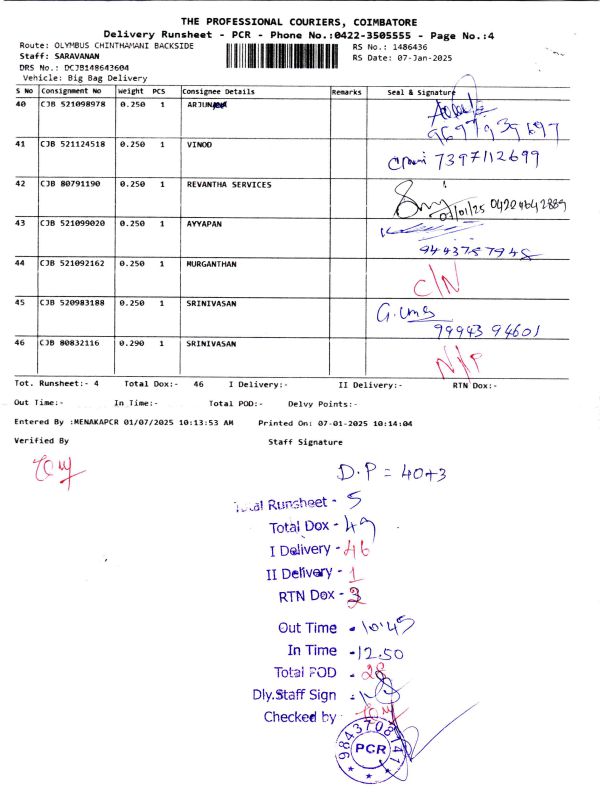 THE PROFESSIONAL COURIERS, COIMBATORE
Delivery Runsheet - PCR - Phone No.:0422-3505555 - Page No.:4
Route: OLYMBUS CHINTHAMANI BACKSIDE RS No.: 1486436
Staff: SARAVANAN RS Date: 07-Jan-2025
DRS No.: DCJB148643604
Vehicle: Big Bag Delivery
S No Consignment No Weight PCS Consignee Details Remarks Seal & Signature
40 CJB 521098978 0.250 1 ARJUN
9697939697
41 CJB 521124518 0.250 1 VINOD
7397112699
42 CJB 80791190 0.250 1 REVANTHA SERVICES
07/01/25
43 CJB 521099020 0.250 1 AYYAPAN
44 CJB 521092162 0.250 1 MURGANTHAN
C/N
45 CJB 520983188 0.250 1 SRINIVASAN
99943 94601
46 CJB 80832116 0.290 1 SRINIVASAN
N/P
Tot. Runsheet:- 4 Total Dox:- 46 I Delivery:- II Delivery:- RTN Dox:-
Out Time:- In Time:- Total POD:- Delvy Points:-
Entered By :MENAKAPCR 01/07/2025 10:13:53 AM Printed On: 07-01-2025 10:14:04
Verified By Staff Signature
D.P = 40+3
Total Runsheet - 5
Total Dox - 49
I Delivery - 46
II Delivery - 1
RTN Dox -
Out Time - 10.45
In Time - 12.50
Total POD - 28
Dly.Staff Sign -
Checked by -
9843708141
PCR